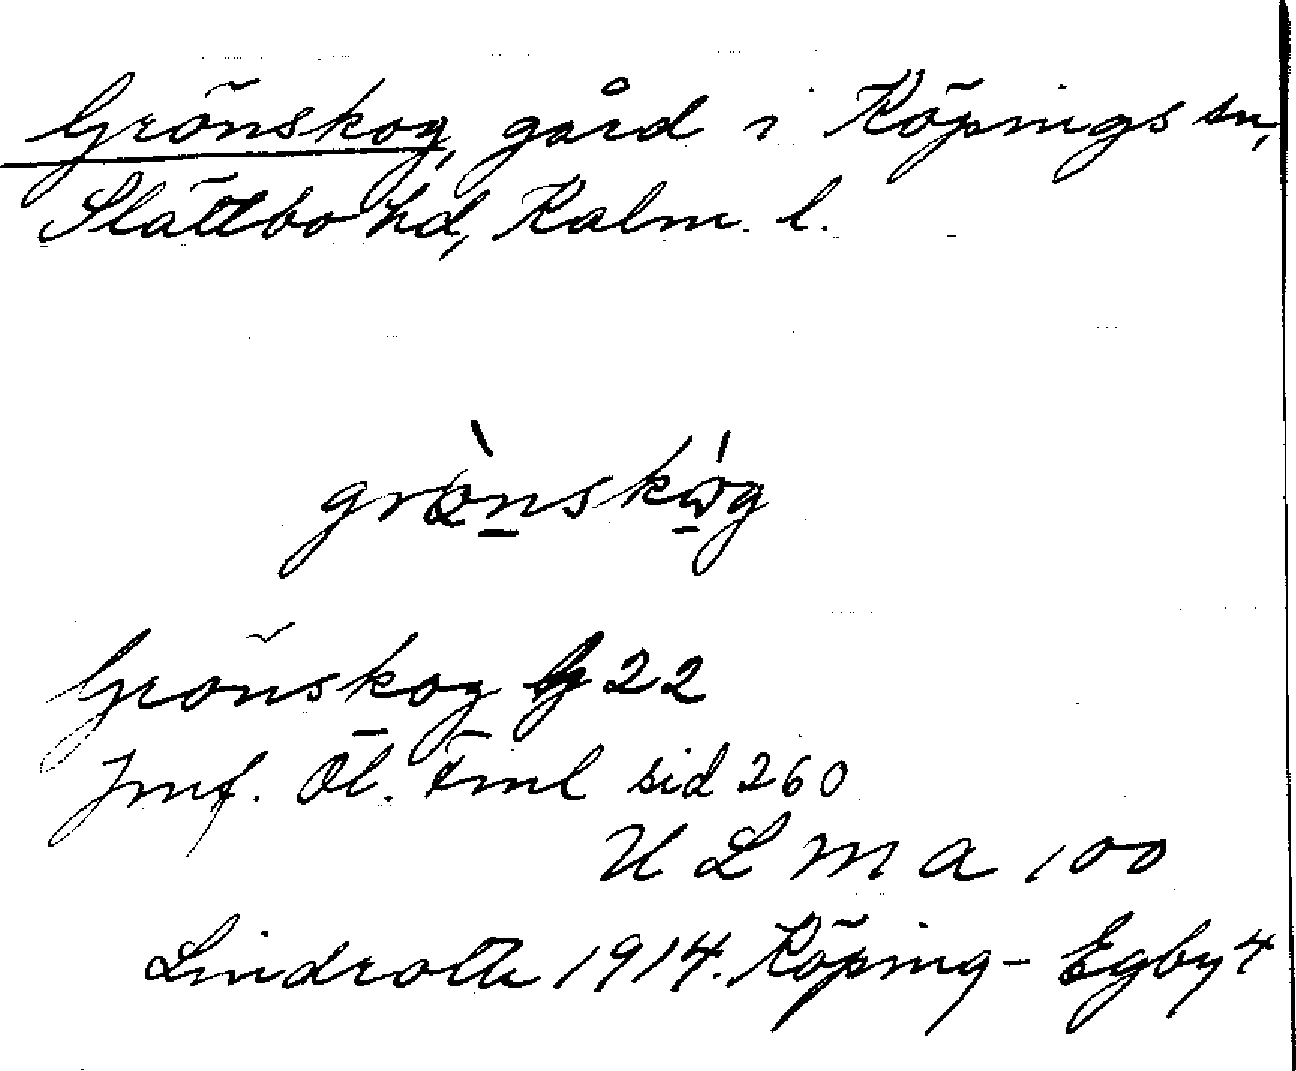 Grönskog, gård i Köpings sn,
Slättbo hd, Kalm. l.
Grönskog 22
Jmf. Öl. Fml sid 260
U L M A 100
Lindroth 1914. Köping - Egby 4